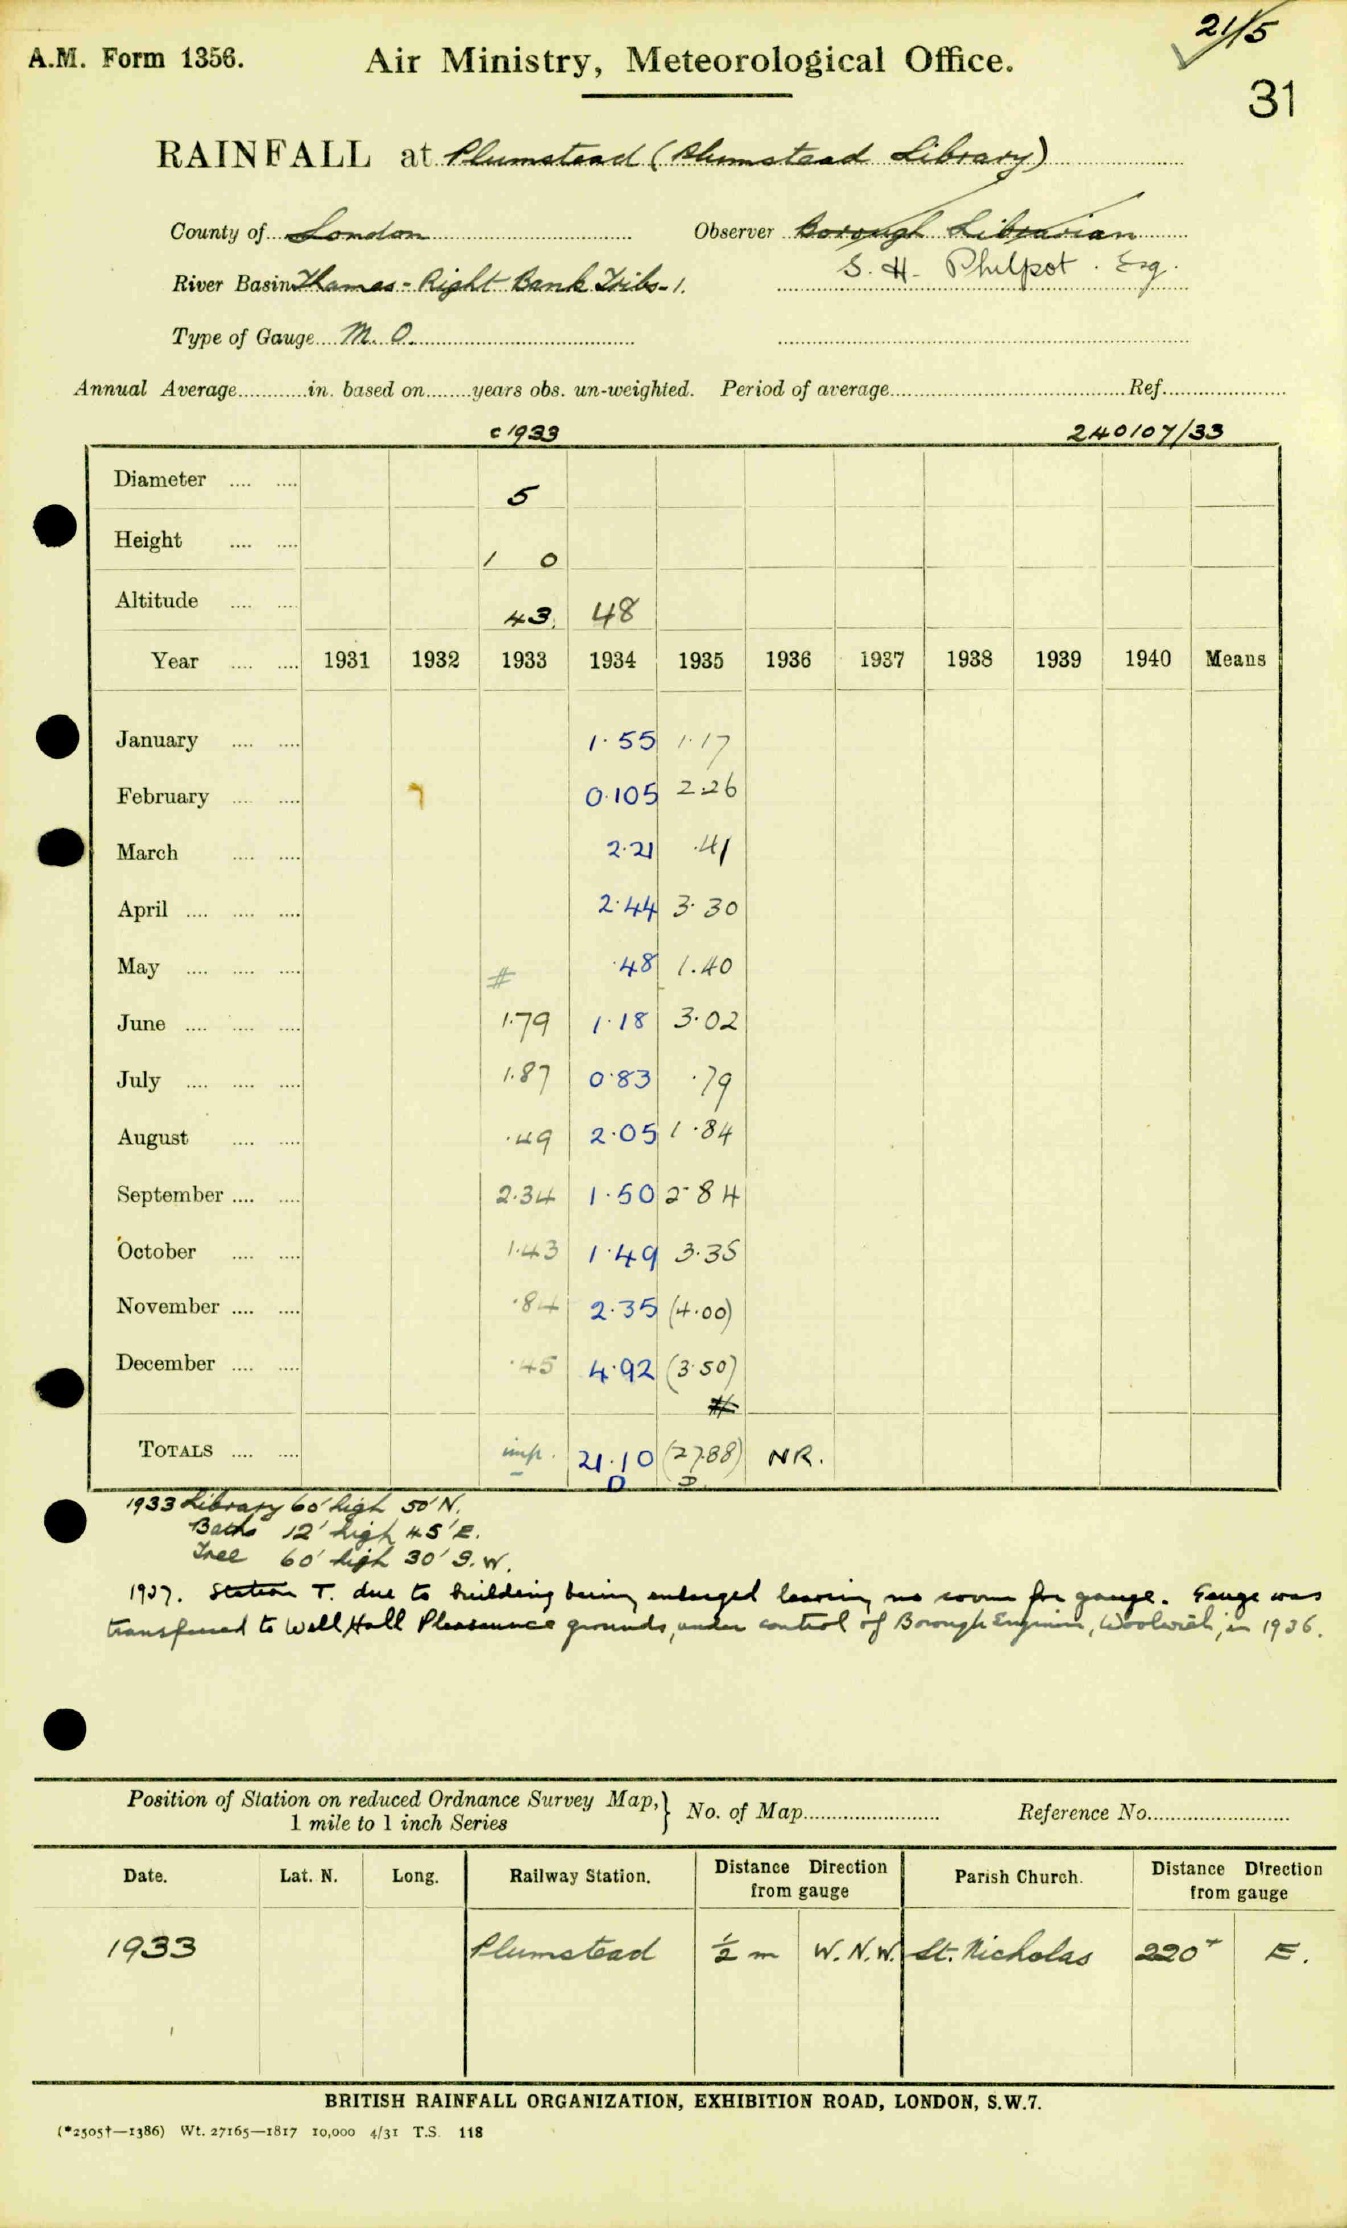 21/15
A.M. Form 1356. Air Ministry, Meteorological Office.
31
RAINFALL at Plumstead (Plumstead Library)
County of London Observer Borough Librarian
S. H. Philpot. Esq.
River Basin Thames - Right Bank Tribs - 1.
Type of Gauge M. O.
Annual Average............in. based on........years obs. un-weighted. Period of average........................ Ref.....................
c 1933 240107/33
Diameter .... .... 5
Height .... .... 1 0
Altitude .... .... 43. 48
Year .... .... 1931 1932 1933 1934 1935 1936 1937 1938 1939 1940 Means
January .... .... 1.55 1.17
February .... .... 0.105 2.26
March .... .... 2.21 .41
April .... .... .... 2.44 3.30
May .... .... .... # .48 1.40
June .... .... .... 1.79 1.18 3.02
July .... .... .... 1.87 0.83 .79
August .... .... .49 2.05 1.84
September .... .... 2.34 1.50 2.84
October .... .... 1.43 1.49 3.35
November .... .... .84 2.35 (4.00)
December .... .... .45 4.92 (3.50)
#
TOTALS .... .... imp. 21.10 (27.88) NR.
D D
1933 Library 60' high 50' N.
Baths 12' high 45' E.
Tree 60' high 30' S.W.
1937. Station T. due to building being enlarged leaving no room for gauge. Gauge was
transferred to Well Hall Pleasaunce grounds, under control of Borough Engineer, Woolwich, in 1936.
Position of Station on reduced Ordnance Survey Map, } No. of Map........................ Reference No.........................
1 mile to 1 inch Series
Date. Lat. N. Long. Railway Station. Distance Direction Parish Church. Distance Direction
from gauge from gauge
1933 Plumstead ½ m W.N.W. St. Nicholas 220+ E.
BRITISH RAINFALL ORGANIZATION, EXHIBITION ROAD, LONDON, S.W.7.
(*2505†—1386) Wt. 27165—1817 10,000 4/31 T.S. 118